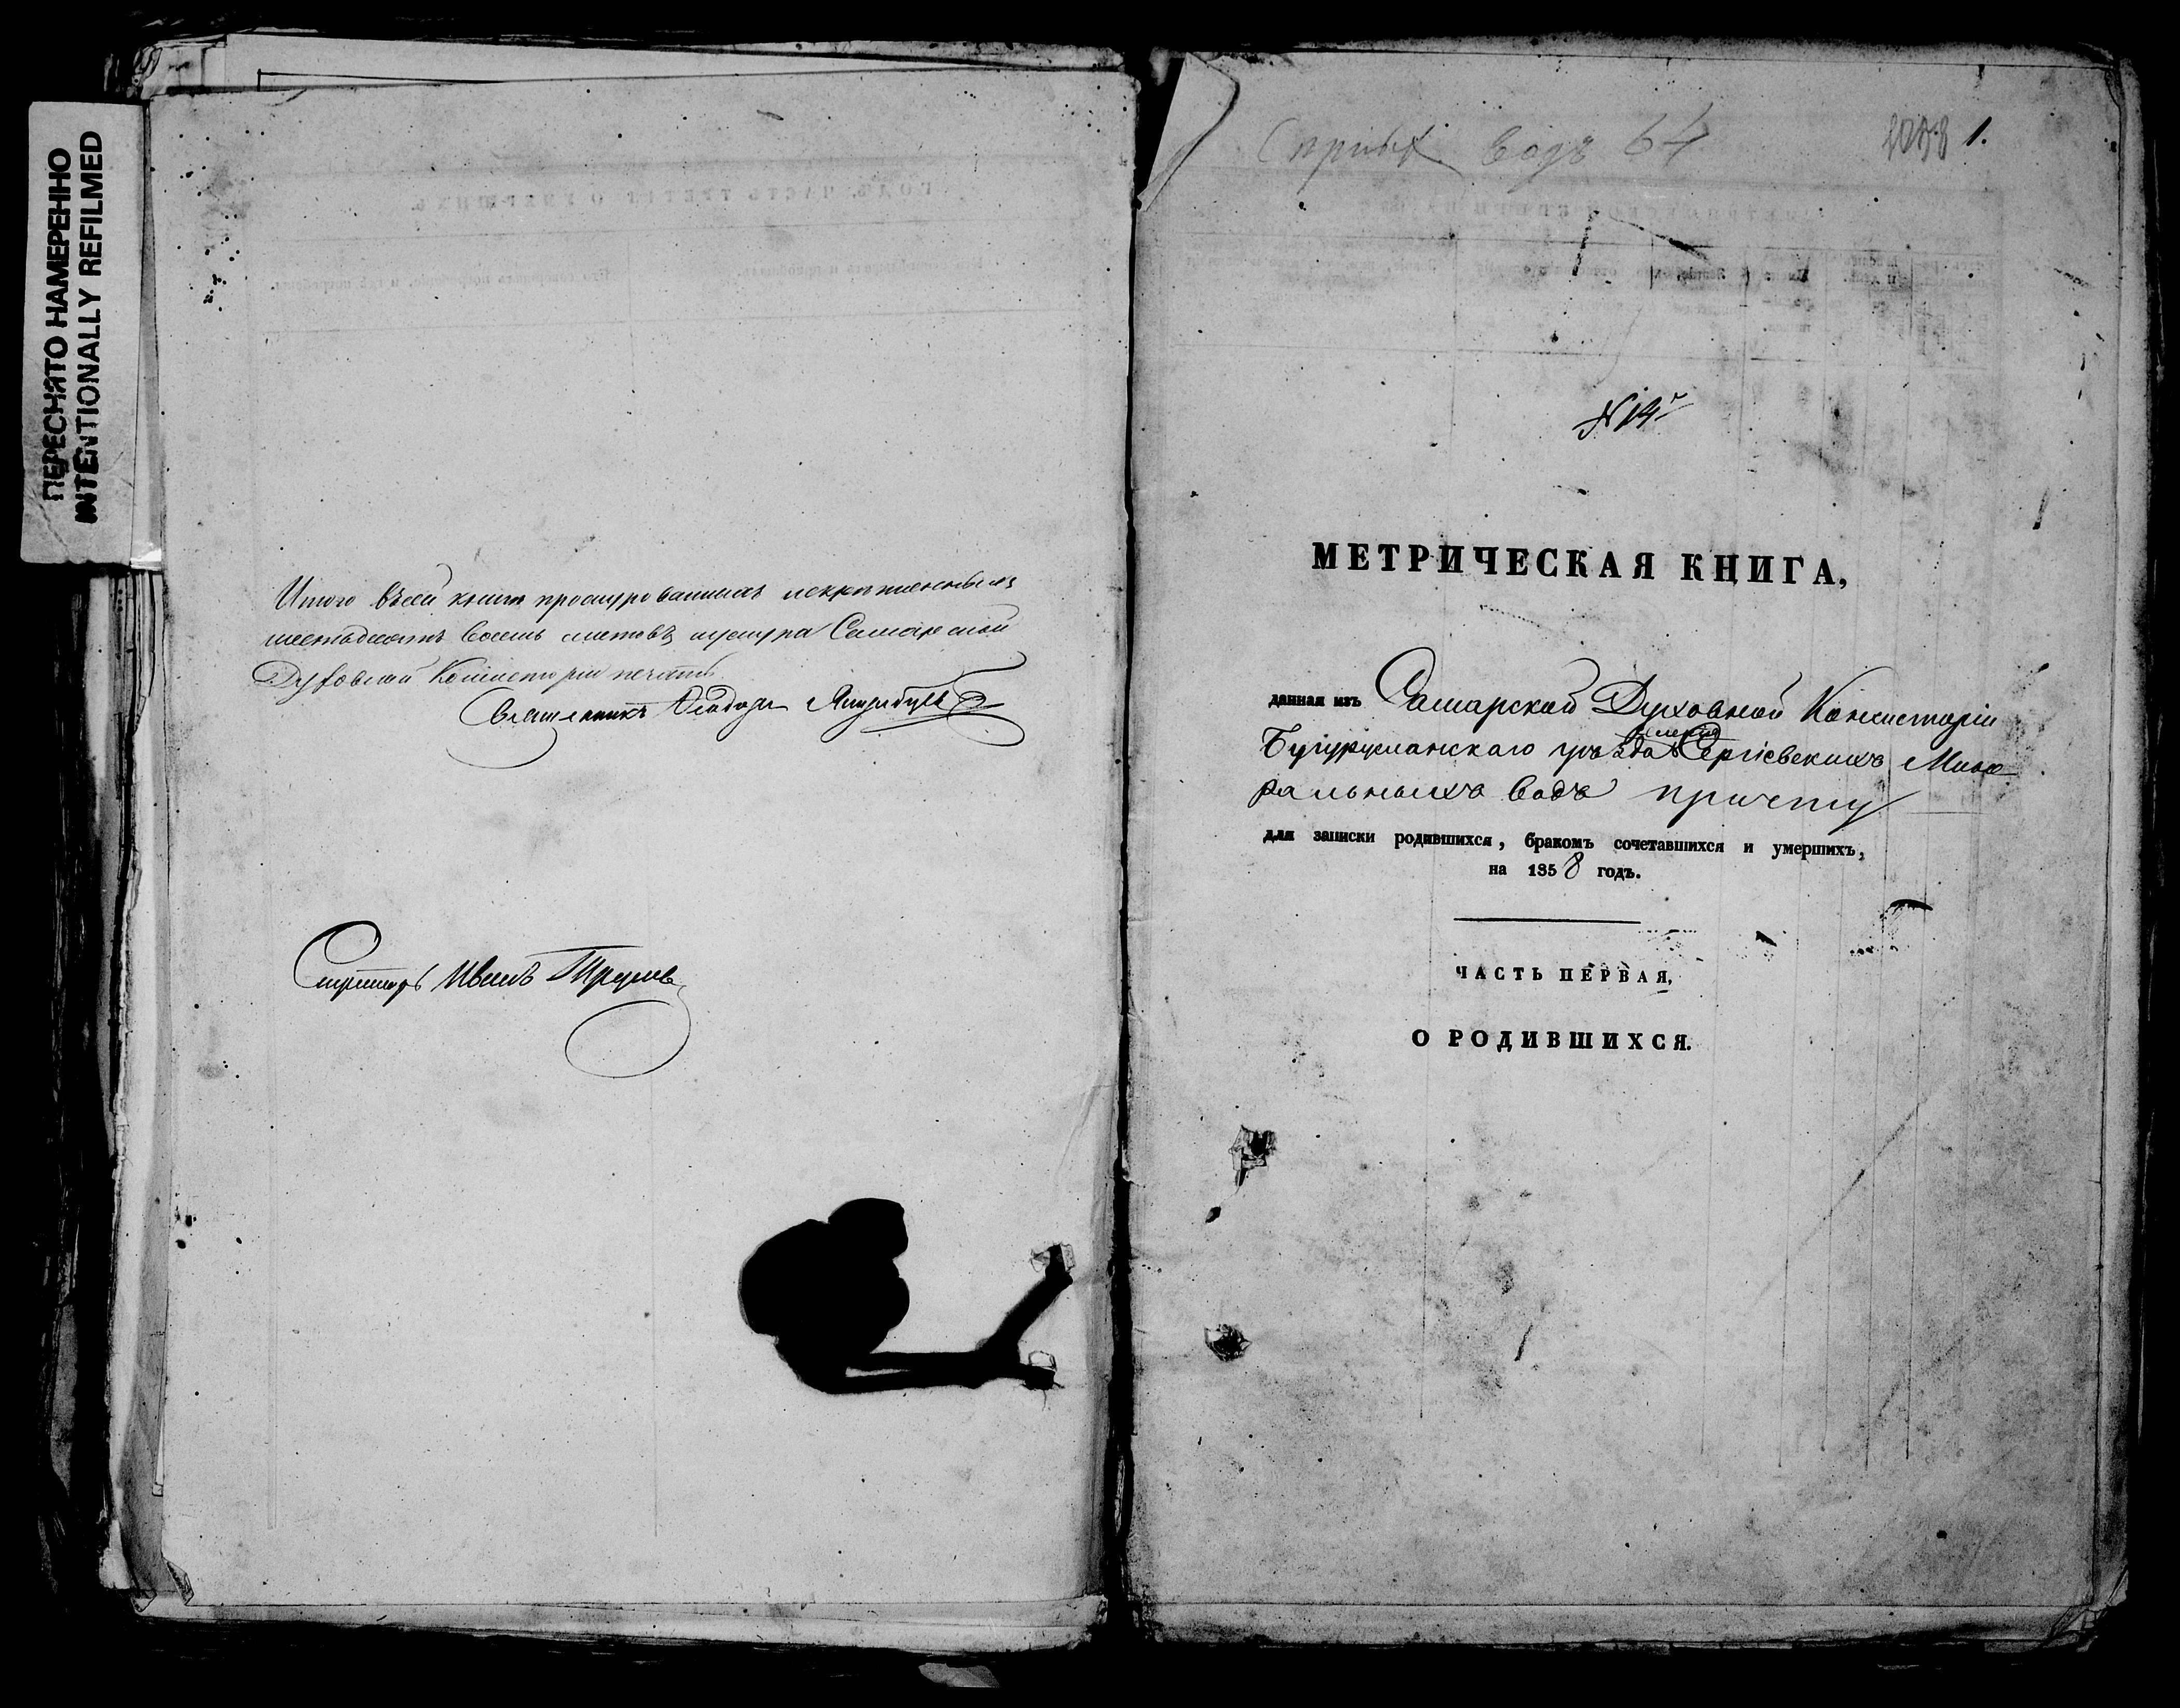 ПЕРЕСНЯТО НАМЕРЕННО
INTENTIONALLY REFILMED
Итого въ сей книге прошнурованныхъ и скрепленныхъ
шестьдесятъ восемь листовъ и у шнура Самарской
Духовной Консисторiи печать
Священникъ
Секретарь Иванъ
водъ 64
1.
МЕТРИЧЕСКАЯ КНИГА,
данная изъ Самарской Духовной Консисторiи
Бугурусланскаго уѣзда Сергiевскихъ Мине
ральныхъ водъ причту
для записки родившихся, бракомъ сочетавшихся и умершихъ,
на 1858 годъ.
ЧАСТЬ ПЕРВАЯ,
О РОДИВШИХСЯ.